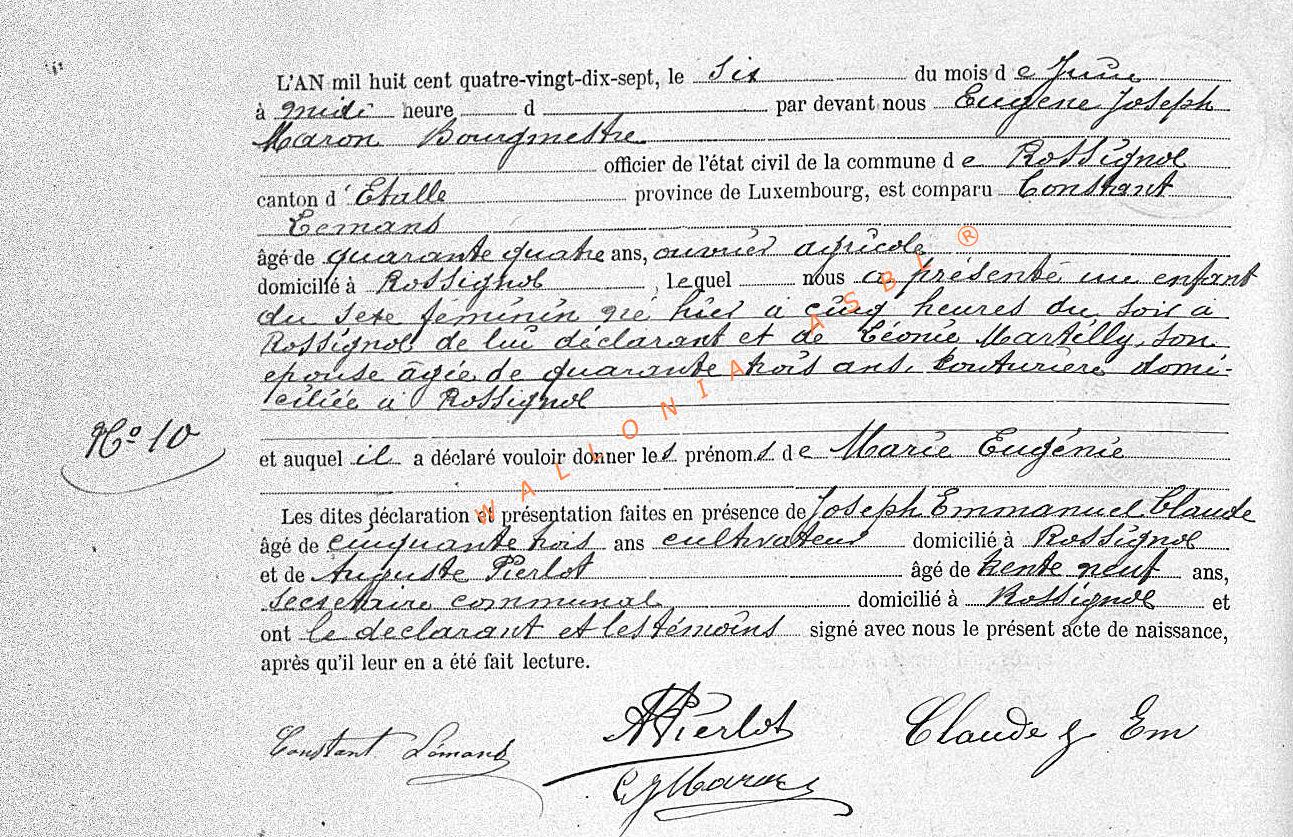 L'AN mil huit cent quatre-vingt-dix-sept, le Six du mois de Juin
à midi heure d par devant nous Eugène Joseph
Maron Bourgmestre
officier de l'état civil de la commune de Rossignol
canton d'Etalle province de Luxembourg, est comparu Constant
Lemans
âgé de quarante quatre ans, ouvrier agricole
domicilié à Rossignol, lequel nous a présenté un enfant
du sexe féminin né hier à cinq heures du soir à
Rossignol de lui déclarant et de Léonie Martilly, son
epouse âgée de quarante trois ans, couturière domi-
ciliée à Rossignol
N° 10
et auquel il a déclaré vouloir donner les prénoms de Marie Eugénie
Les dites déclaration et présentation faites en présence de Joseph Emmanuel Claude
âgé de cinquante trois ans cultivateur domicilié à Rossignol
et de Auguste Pierlot âgé de trente neuf ans,
secrétaire communal domicilié à Rossignol et
ont le déclarant et les témoins signé avec nous le présent acte de naissance,
après qu'il leur en a été fait lecture.
Constant Lémans
A Pierlot
Claude J Em
E J Maron
WALLONIA ASBL ®